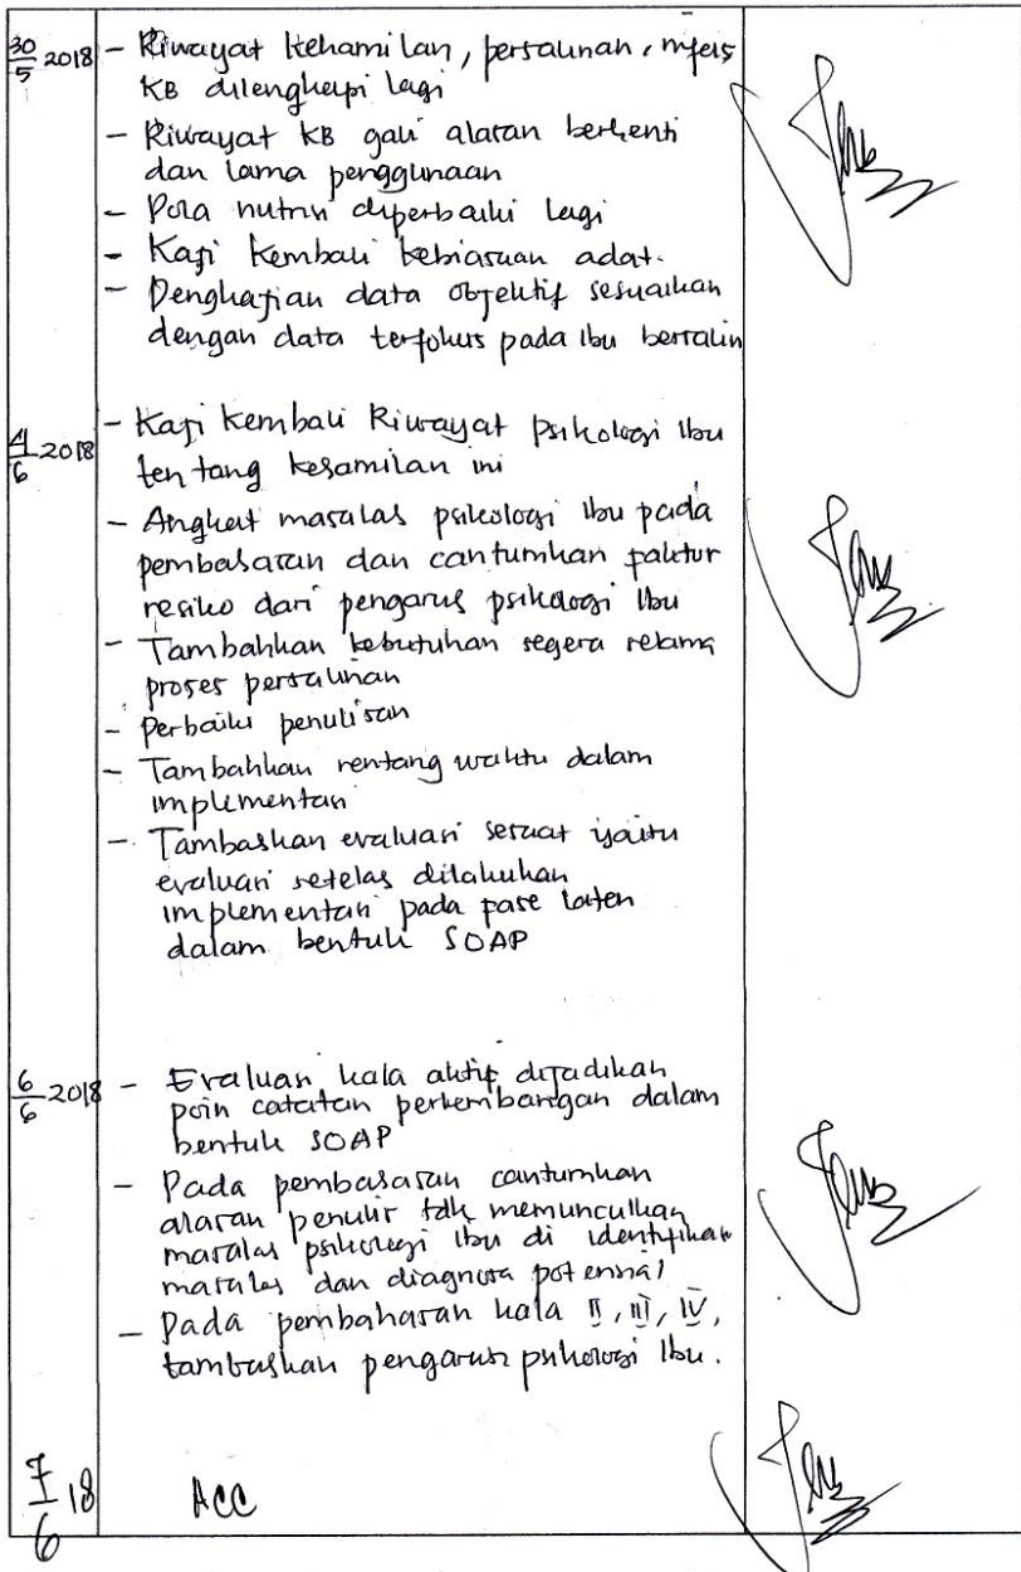 30/5 2018 - Riwayat kehamilan, persalinan, nifas
KB dilengkapi lagi
- Riwayat KB gali alasan berhenti
dan lama penggunaan
- Pola nutrisi diperbaiki lagi
- Kaji kembali kebiasaan adat.
- Pengkajian data objektif sesuaikan
dengan data terfokus pada ibu bersalin
4/6 2018 - Kaji kembali Riwayat psikologi ibu
tentang kehamilan ini
- Angkat masalah psikologi ibu pada
pembahasan dan cantumkan faktor
resiko dari pengaruh psikologi ibu
- Tambahkan kebutuhan segera selama
proses persalinan
- Perbaiki penulisan
- Tambahkan rentang waktu dalam
implementasi
- Tambahkan evaluasi sesuai yaitu
evaluasi setelah dilakukan
implementasi pada fase laten
dalam bentuk SOAP
6/6 2018 - Evaluasi kala aktif dijadikan
poin catatan perkembangan dalam
bentuk SOAP
- Pada pembahasan cantumkan
alasan penulis tdk memunculkan
masalah psikologi ibu di identifikasi
masalah dan diagnosa potensial
- Pada pembahasan kala II, III, IV,
tambahkan pengaruh psikologi ibu.
7/6 18 ACC